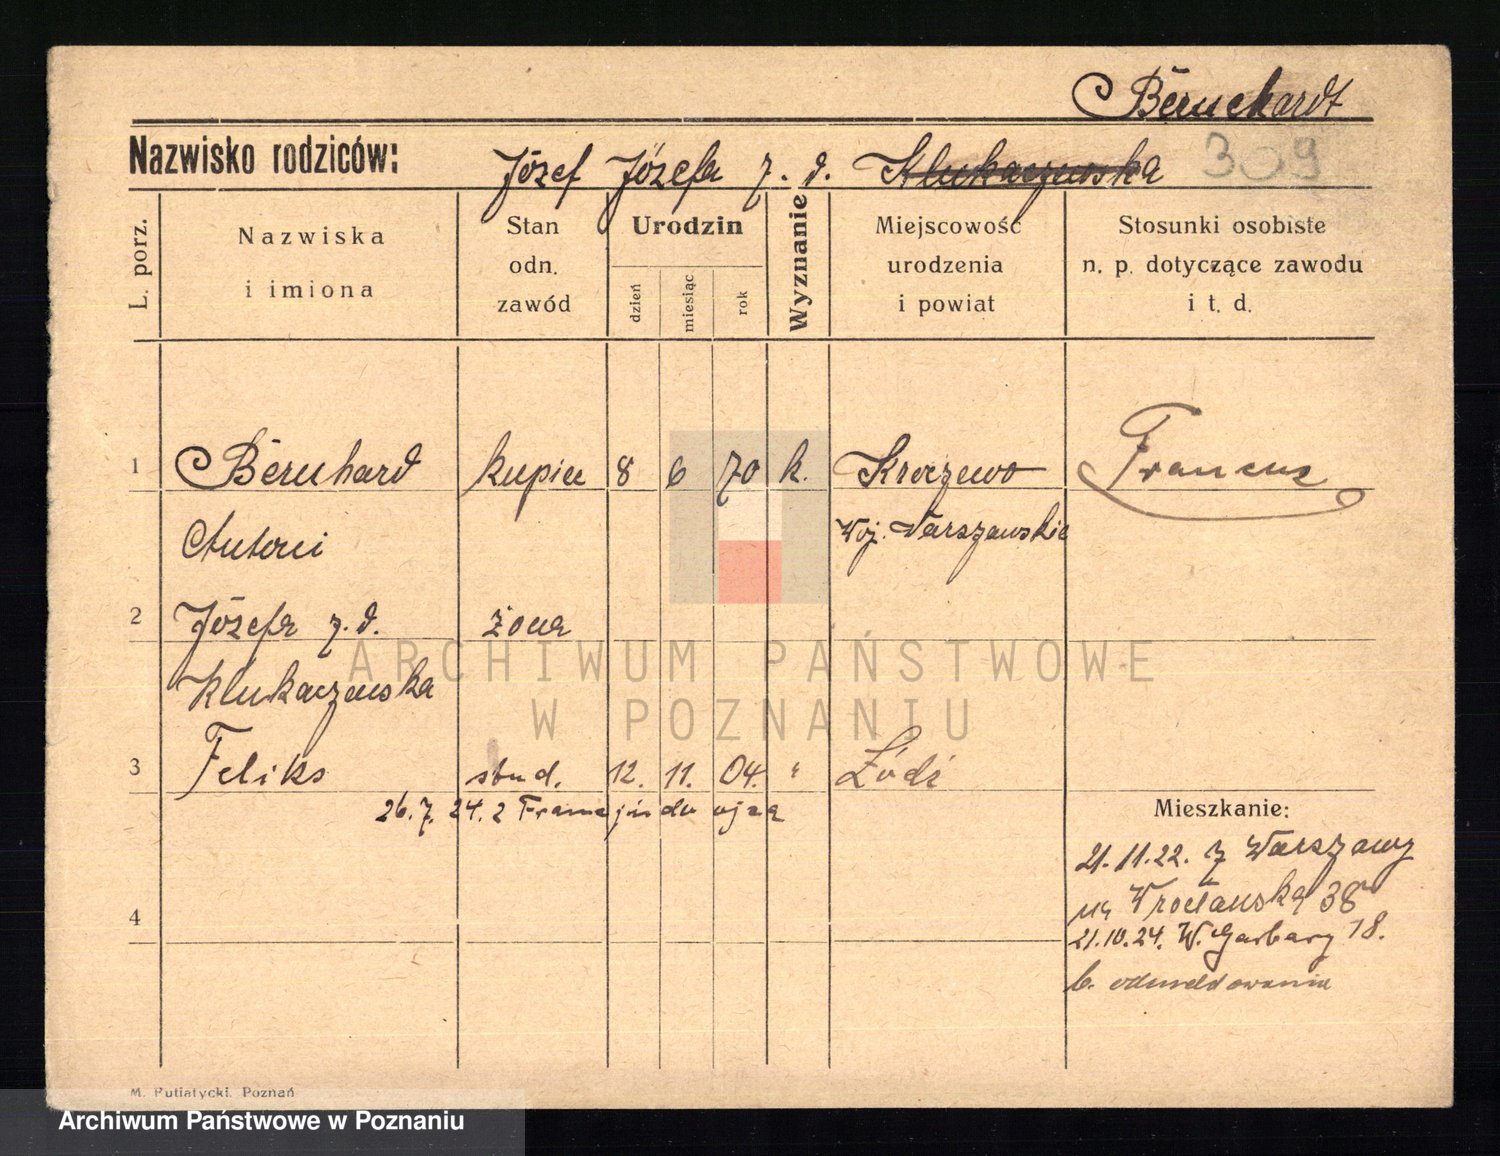 Bernchardt
Nazwisko rodziców: Józef Józefa z. d. Klukaczewska 309
L. porz.
Nazwiska i imiona
Stan odn. zawód
Urodzin
dzień
miesiąc
rok
Wyznanie
Miejscowość urodzenia i powiat
Stosunki osobiste n. p. dotyczące zawodu i t. d.
1 Bernhard kupiec 8 6 70 k. Kroczewo Francuz
Antoni Woj. Warszawskie
2 Józefa z. d. żona
Klukaczewska
3 Feliks stud. 12. 11. 04. " Łódź
26. 7. 24. z Franc
Mieszkanie:
21.11.22. z Warszawy
Wrocławska 38
21.10.24. W. Garbary 18.
b. odmeldowania
4
M. Putiatycki. Poznań
ARCHIWUM PAŃSTWOWE
W POZNANIU
Archiwum Państwowe w Poznaniu